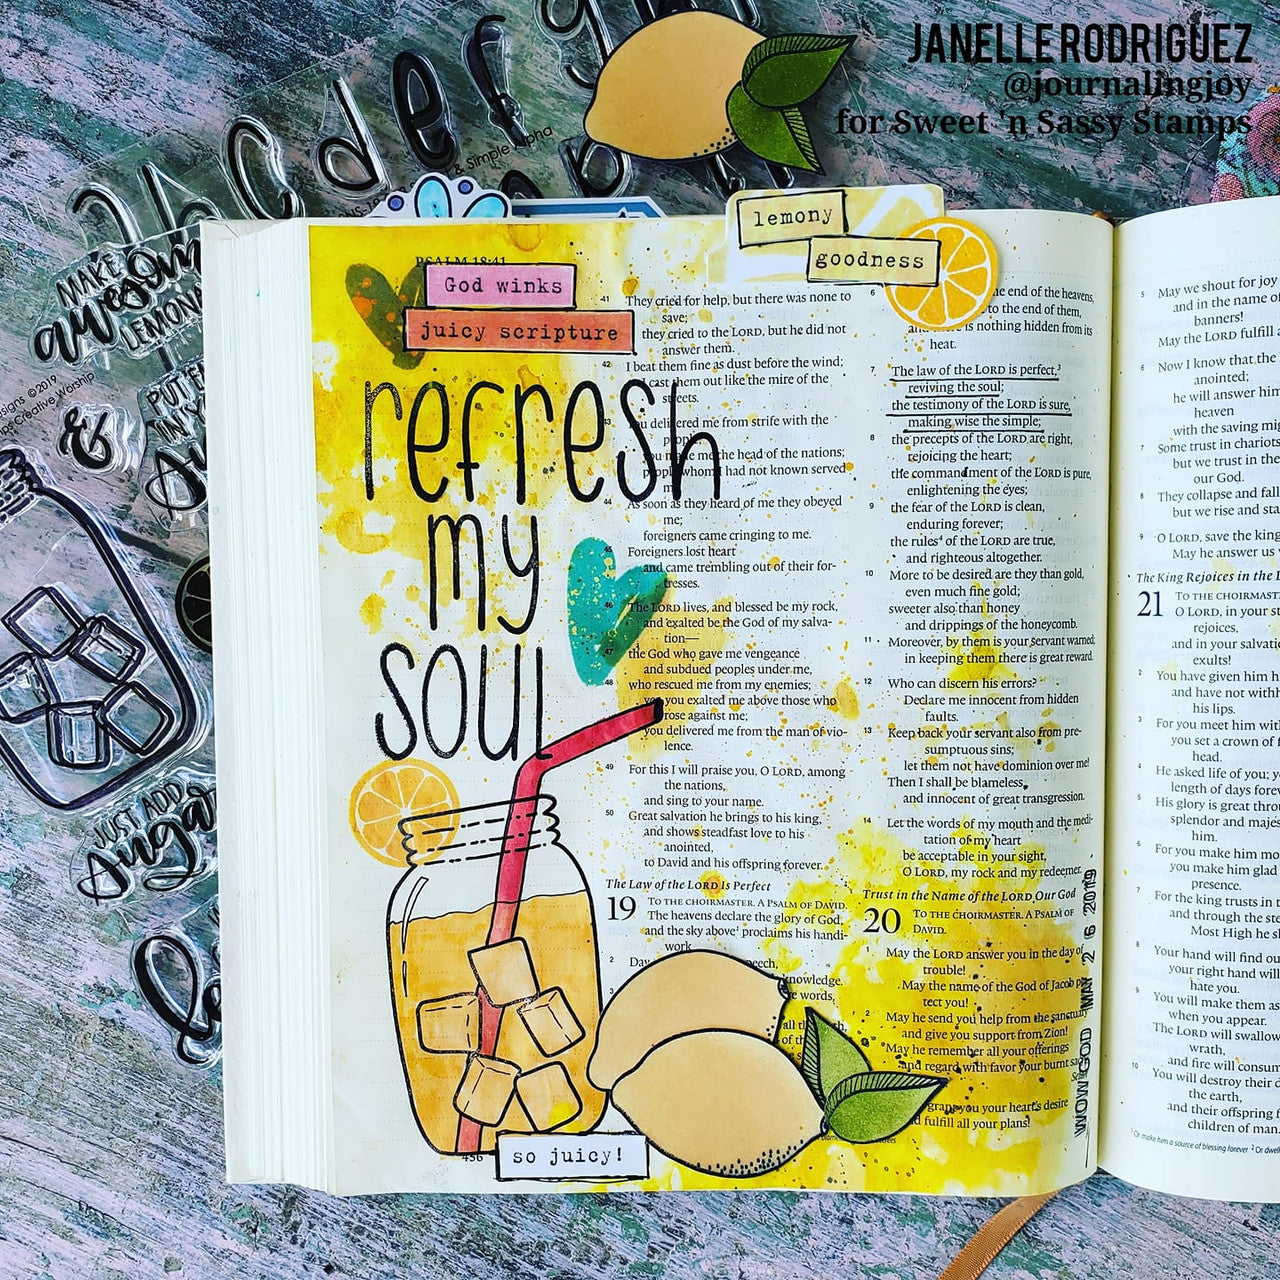 JANELLE RODRIGUEZ
@journalingjoy
for Sweet 'n Sassy Stamps
& Simple Alpha
MAKE
awesome
LEMONA
signs © 2019
ps Creative Worship
&
JUST ADD
sugar
lemony
goodness
PSALM 18:41
God winks
juicy scripture
refresh
my
soul
so juicy!
456
41 They cried for help, but there was none to
save;
they cried to the LORD, but he did not
answer them.
42 I beat them fine as dust before the wind;
I cast them out like the mire of the
streets.
43 You delivered me from strife with the
you made me the head of the nations;
people whom I had not known served
44 As soon as they heard of me they obeyed
me;
foreigners came cringing to me.
45 Foreigners lost heart
and came trembling out of their for-
tresses.
46 The LORD lives, and blessed be my rock,
and exalted be the God of my salva-
tion—
47 the God who gave me vengeance
and subdued peoples under me,
48 who rescued me from my enemies;
yes, you exalted me above those who
rose against me;
you delivered me from the man of vio-
lence.
49 For this I will praise you, O LORD, among
the nations,
and sing to your name.
50 Great salvation he brings to his king,
and shows steadfast love to his
anointed,
to David and his offspring forever.
The Law of the LORD Is Perfect
19 TO THE CHOIRMASTER. A PSALM OF DAVID.
The heavens declare the glory of God,
and the sky above¹ proclaims his handi-
work.
2 Day speech,
knowledge.
3 words,
6 the end of the heavens,
to the end of them,
and there is nothing hidden from its
heat.
7 The law of the LORD is perfect,³
reviving the soul;
the testimony of the LORD is sure,
making wise the simple;
8 the precepts of the LORD are right,
rejoicing the heart;
the commandment of the LORD is pure,
enlightening the eyes;
9 the fear of the LORD is clean,
enduring forever;
the rules⁴ of the LORD are true,
and righteous altogether.
10 More to be desired are they than gold,
even much fine gold;
sweeter also than honey
and drippings of the honeycomb.
11 Moreover, by them is your servant warned;
in keeping them there is great reward.
12 Who can discern his errors?
Declare me innocent from hidden
faults.
13 Keep back your servant also from pre-
sumptuous sins;
let them not have dominion over me!
Then I shall be blameless,
and innocent of great transgression.
14 Let the words of my mouth and the medi-
tation of my heart
be acceptable in your sight,
O LORD, my rock and my redeemer.
Trust in the Name of the LORD Our God
20 TO THE CHOIRMASTER. A PSALM OF
DAVID.
May the LORD answer you in the day of
trouble!
May the name of the God of Jacob pro-
tect you!
2 May he send you help from the sanctuary
and give you support from Zion!
3 May he remember all your offerings
and regard with favor your burnt sac
grant you your heart's desire
and fulfill all your plans!
WOW GOD MAY 26 2019
5 May we shout for joy
and in the name of
banners!
May the LORD fulfill
6 Now I know that the
anointed;
he will answer him
heaven
with the saving mig
7 Some trust in chariots
but we trust in the
our God.
8 They collapse and fall
but we rise and sta
9 O LORD, save the king
May he answer us
The King Rejoices in the L
21 TO THE CHOIRMASTER.
O LORD, in your s
rejoices,
and in your salvati
exults!
2 You have given him h
and have not withh
his lips.
3 For you meet him wit
you set a crown of f
head.
4 He asked life of you; y
length of days forev
5 His glory is great throu
splendor and majes
him.
6 For you make him mo
you make him glad
presence.
7 For the king trusts in t
and through the ste
Most High he sh
8 Your hand will find ou
your right hand will
hate you.
9 You will make them as
when you appear.
The LORD will swallow
wrath,
and fire will consum
10 You will destroy their d
the earth,
and their offspring f
children of man.
¹ Or make him a source of blessing forever ² Or dwell